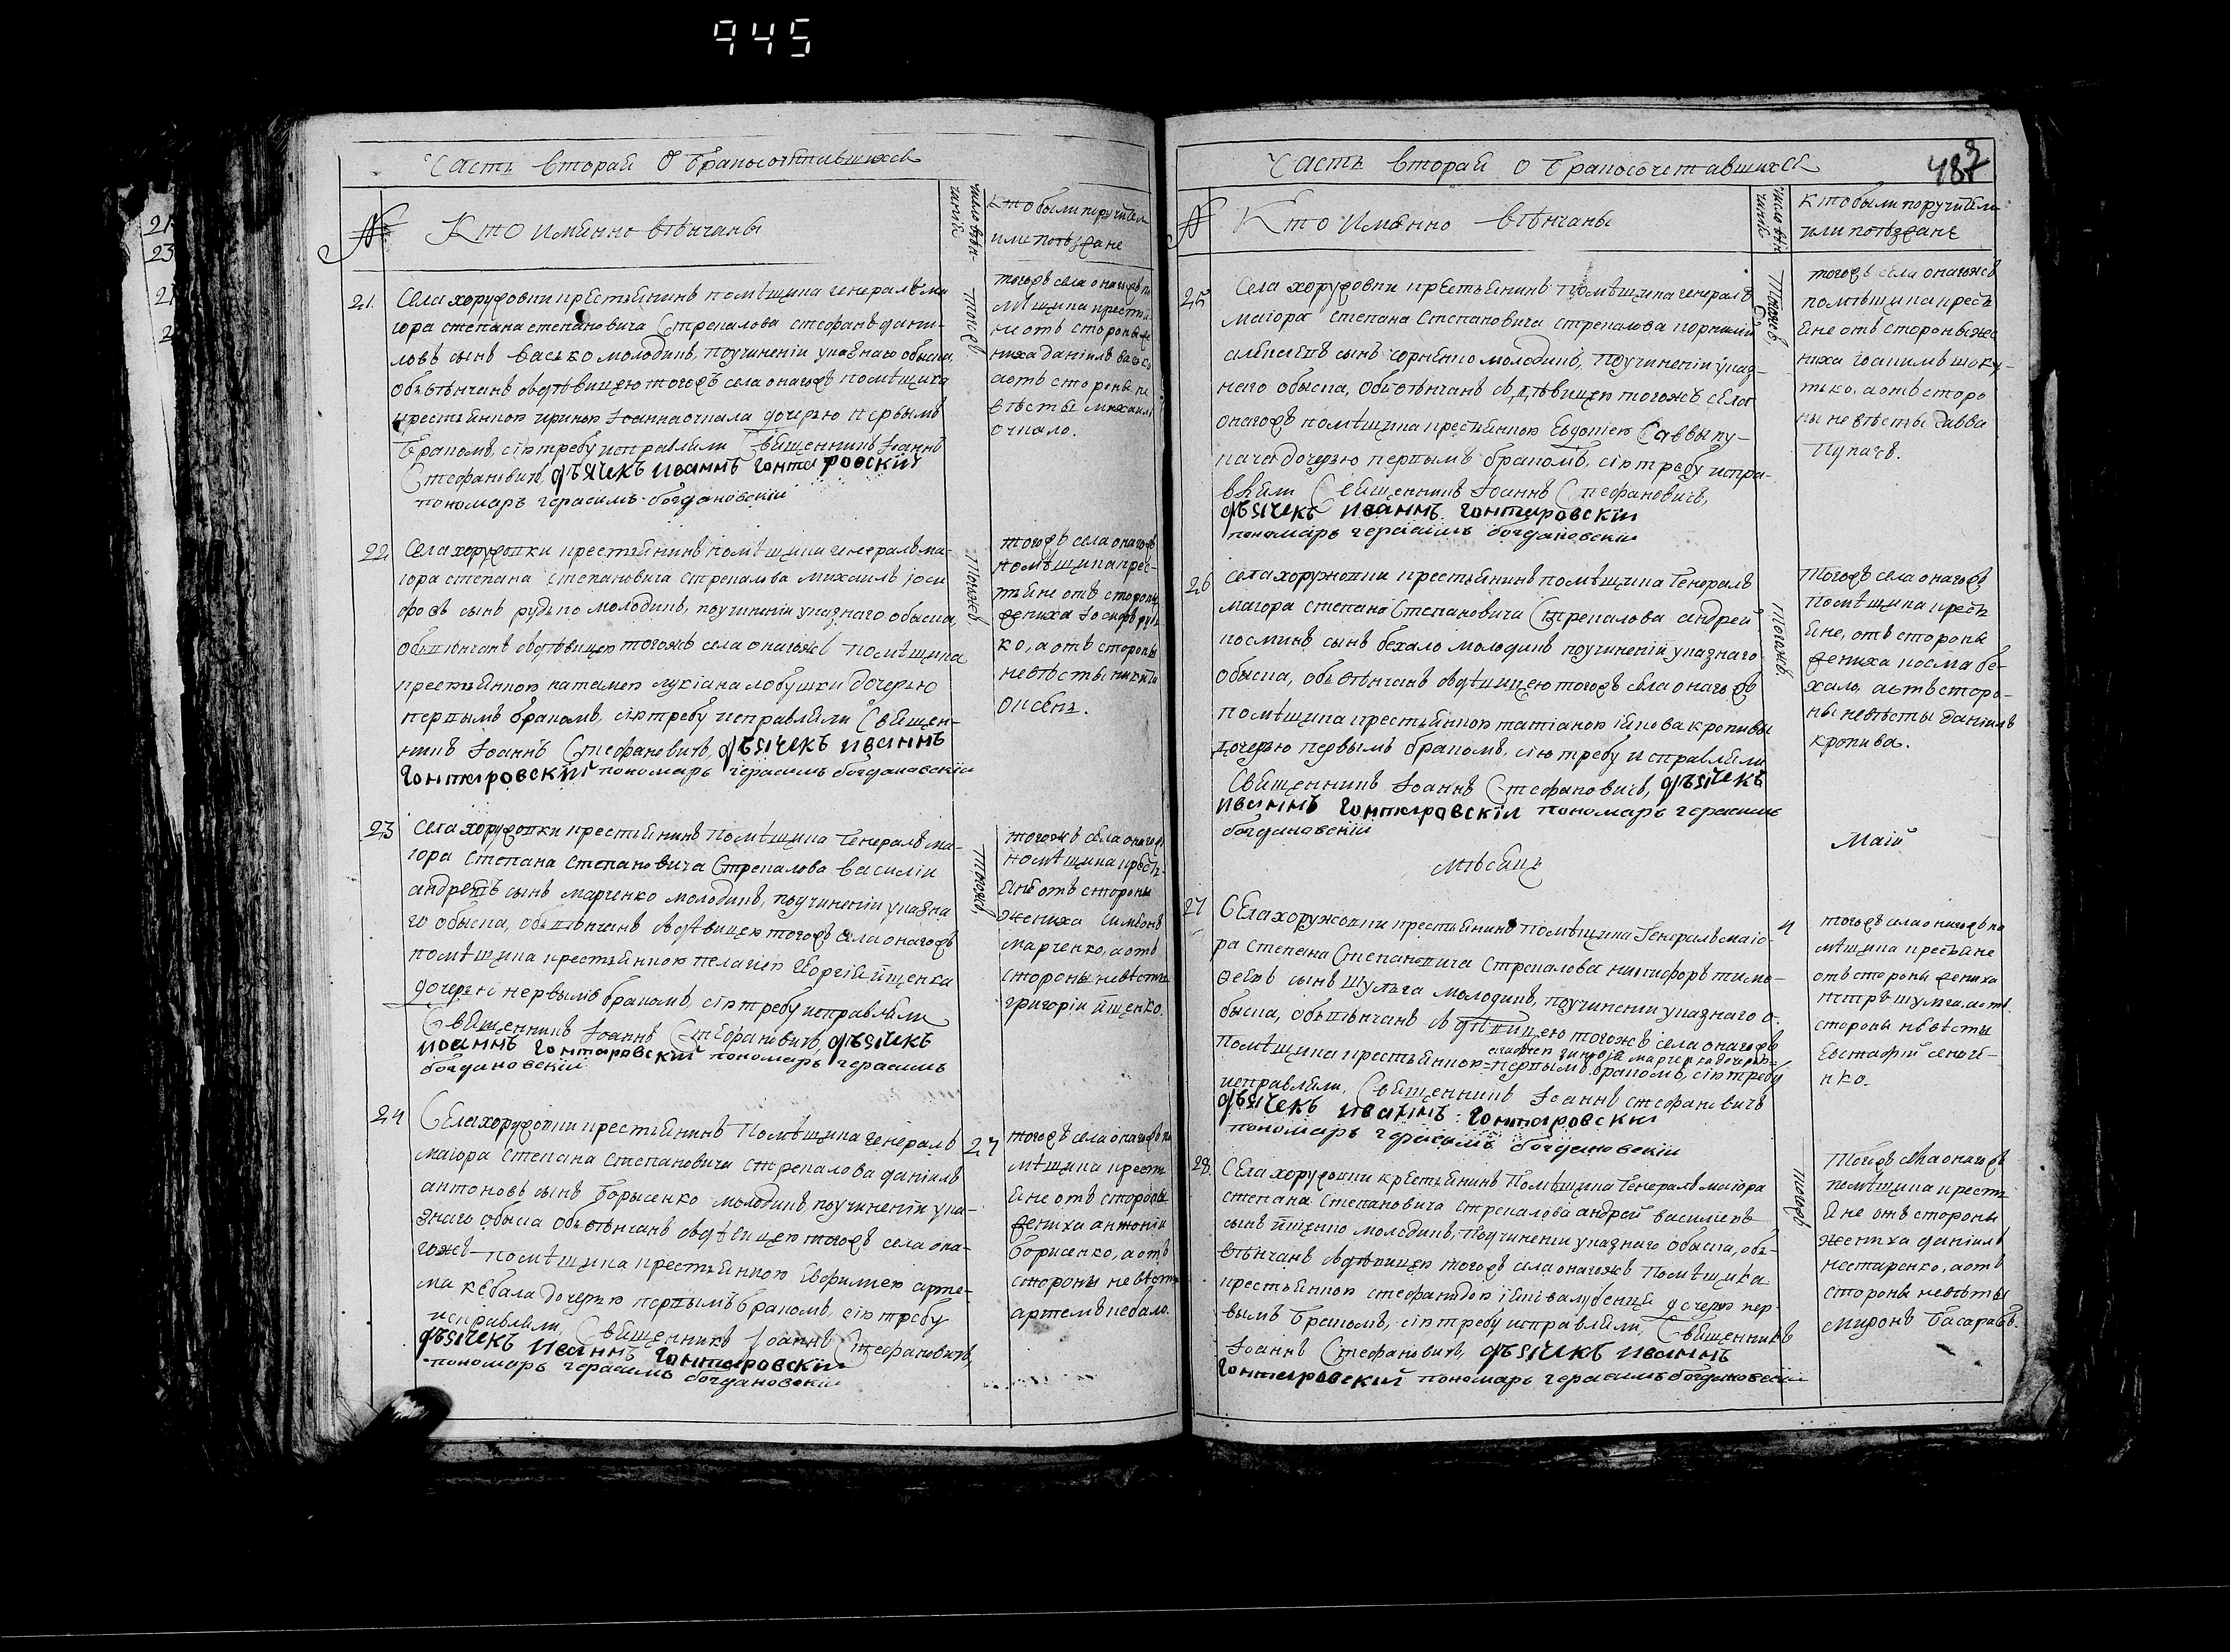 945
Часть вторая О бракосочетавшихся
№
Кто именно вѣнчаны
число вѣнчаній
кто были поручители
или поѣзжане
21.
Села хоружовки крестьянинъ помѣщика генералъ ма
іора степана степановича Стрекалова стефанъ дани-
ловъ сынъ васько молодикъ, поучиненіи указнаго обыска
обвѣнчанъ здѣвицею тогожъ села онагожъ помѣщика
крестьянкою іриною Іоанна очкала дочерью первымъ
бракомъ, сію требу исправляли Священникъ Іоаннъ
Стефановичъ, дьячекъ Иваннъ Гонтаровскій
пономарь герасимъ богдановскіи
тогожъ
тогожъ села онагожъ по
мѣщика крестья
не отъ стороны же
ниха даніилъ васко
аотъ стороны не
вѣсты михаилъ
очкало.
22
Села хоружовки крестьянинъ помѣщика генералъ ма-
іора степана степановича стрекалова михаилъ іоси
фовъ сынъ рудько молодикъ, поучиненіи указнаго обыска,
обвѣнчанъ здѣвицею тогожъ села онагожъ помѣщика
крестьянкою лукіана лобушки дочерью
первымъ бракомъ, сію требу исправляли Священ-
никъ Іоаннъ Стефановичъ, дьячекъ Иваннъ
Гонтаровскій пономарь герасимъ богдановскіи
тогожъ
тогожъ села онагожъ
помѣщика крес-
тьяне отъ стороны
жениха Іосифъ рудь
ко, а отъ стороны
невѣсты
23
Села хоружовки крестьянинъ помѣщика Генералъ ма-
іора Степана Степановича Стрекалова василіи
андреевъ сынъ марченко молодикъ, поучиненіи указна
го обыска, обвѣнчанъ здѣвицею тогожъ села онагожъ
помѣщика крестьянкою пелагіею Георгія ищенка
дочерью первымъ бракомъ, сію требу исправляли
Священникъ Іоаннъ Стефановичъ, дьячекъ
Иваннъ Гонтаровскій пономарь герасимъ
богдановскіи
тогожъ
тогожъ села онагожъ
помѣщика кресть-
яне отъ стороны
жениха симеонъ
марченко, а отъ
стороны невѣсты
григоріи ищенко.
24
Села хоружовки крестьянинъ Помѣщика генералъ
маіора Степана Степановича стрекалова даніилъ
антоновъ сынъ борысенко молодикъ, поучиненіи ука-
знаго обыска обвѣнчанъ здѣвицею тогожъ села она-
гожъ помѣщика крестьянкою Евфиміею арте-
ма кебала дочерью первымъ бракомъ, сію требу
исправляли Священникъ Іоаннъ Стефановичъ,
дьячекъ Иваннъ Гонтаровскій
пономарь герасимъ богдановскіи
27
тогожъ села онагожъ по
мѣщика кресть
яне отъ стороны
жениха антоніи
борисенко, а отъ
стороны невѣсты
артемъ кебало.
Часть вторая О бракосочетавшихся
487
№
Кто Именно вѣнчаны
число вѣнчаній
Кто были поручители
или поѣзжане
25
Села хоружовки крестьянинъ помѣщика генералъ
маіора степана Степановича стрекалова корнилій
алексѣевъ сынъ молодикъ, поучиненіи указ-
наго обыска, обвѣнчанъ здѣвицею тогожъ села
онагожъ помѣщика крестьянкою Евдокіею Саввы пу-
гача дочерью первымъ бракомъ, сію требу испра-
вляли Священникъ Іоаннъ Стефановичъ,
дьячекъ Иваннъ Гонтаровскіи
пономарь герасимъ богдановскіи
тогожъ
тогожъ села онагожъ
помѣщика кресть
яне отъ стороны же
ниха іоакимъ шоку-
тько, а отъ сторо
ны невѣсты Савва
пугачъ.
26
Села хоружовки крестьянинъ помѣщика Генералъ
маіора степана Степановича Стрекалова андрей
косминъ сынъ бехало молодикъ поучиненіи указнаго
обыска, обвѣнчанъ здѣвицею тогожъ села онагожъ
помѣщика крестьянкою татіаною іякова кропивы
дочерью первымъ бракомъ, сію требу исправляли
Священникъ Іоаннъ Стефановичъ, дьячекъ
Иваннъ Гонтаровскіи пономарь герасимъ
богдановскіи
тогожъ
Тогожъ села онагожъ
помѣщика кресть
яне, отъ стороны
жениха косма бе-
хало, а отъ сторо-
ны невѣсты даніилъ
кропива.
мѣсяцъ
Маій
27
Села хоружовки крестьянинъ помѣщика Генералъ маіо-
ра степана Степановича Стрекалова никифоръ тимо-
ѳеевъ сынъ шульга молодикъ, поучиненіи указнаго о-
быска, обвѣнчанъ здѣвицею тогожъ села онагожъ
помѣщика крестьянкою первымъ бракомъ, сію требу
исправляли, Священникъ Іоаннъ стефановичъ
дьячекъ Иваннъ Гонтаровскіи
пономарь герасимъ богдановскіи
4
тогожъ села онагожъ по
мѣщика крестьяне
отъ стороны жениха
петръ шульга, а отъ
стороны невѣсты
Евстафій
28.
Села хоружовки крестьянинъ Помѣщика Генералъ маіора
степана Степановича Стрекалова андрей василіевъ
сынъ ищенко молодикъ, поучиненіи указнаго обыска, об-
вѣнчанъ здѣвицею тогожъ села онагожъ Помѣщика
крестьянкою стефанидою дочерью пер-
вымъ бракомъ, сію требу исправляли, Священникъ
Іоаннъ Стефановичъ, дьячекъ Иваннъ
Гонтаровскій пономарь герасимъ богдановскіи
тогожъ
Тогожъ села онагожъ
помѣщика кресть
яне отъ стороны
жениха даніилъ
нестеренко, а отъ
стороны невѣсты
миронъ басарабъ.